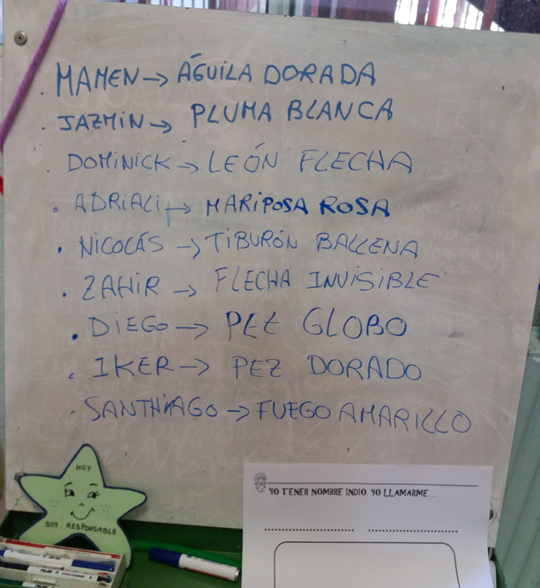 MAMEN → ÁGUILA DORADA
. JAZMIN → PLUMA BLANCA
. DOMINICK → LEÓN FLECHA
. ADRIALI → MARIPOSA ROSA
. NICOLÁS → TIBURÓN BALLENA
. ZAHIR → FLECHA INVISIBLE
. DIEGO → PEZ GLOBO
. IKER → PEZ DORADO
- SANTHIAGO → FUEGO AMARILLO
HOY
SOY RESPONSABLE
YO TENER NOMBRE INDIO. YO LLAMARME...